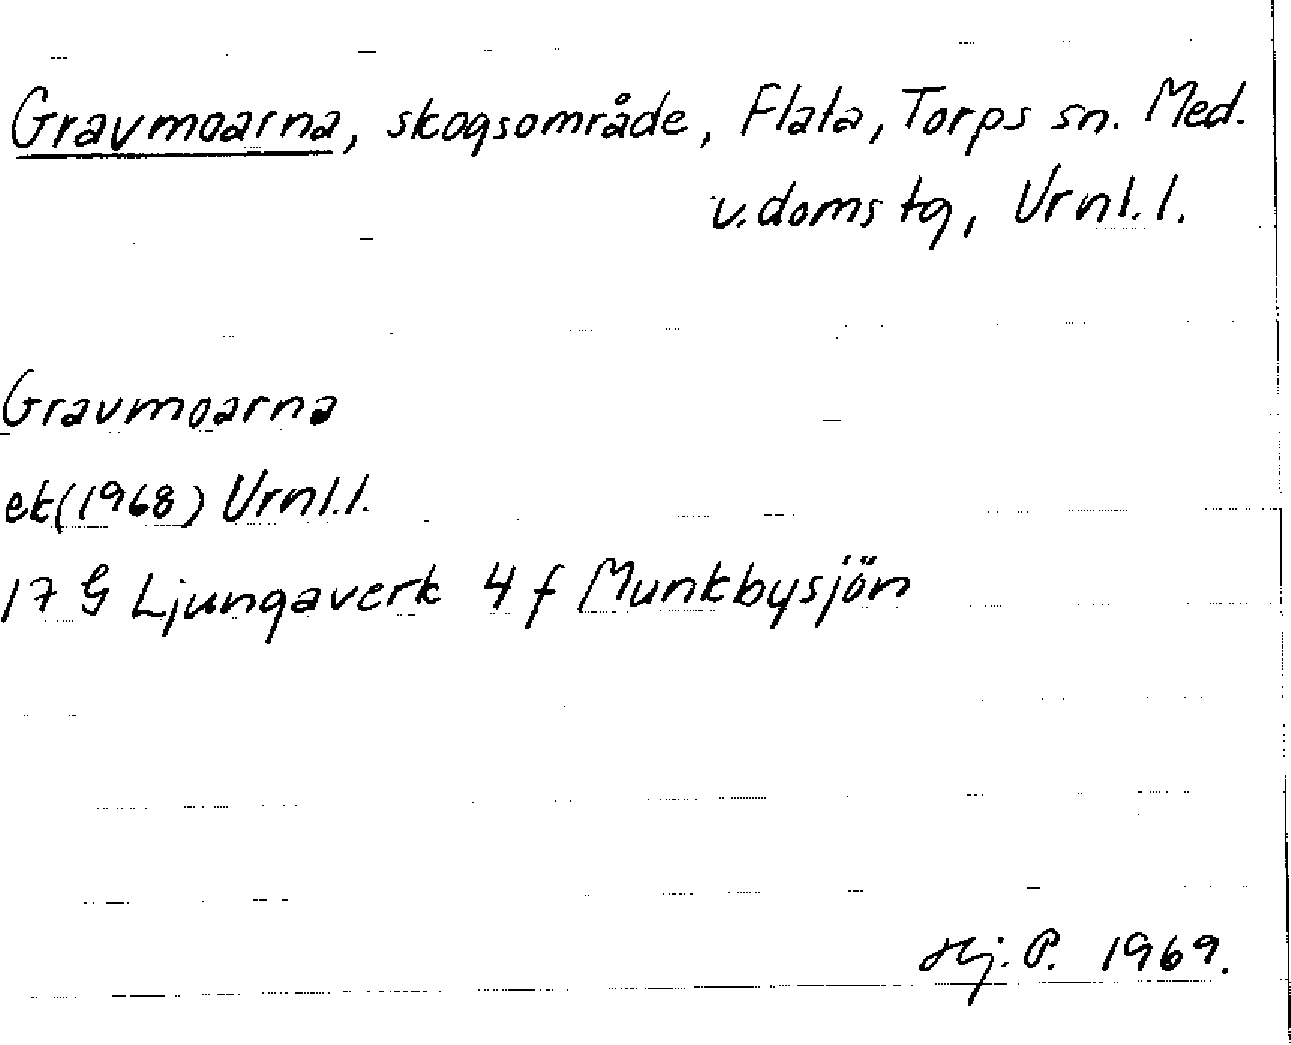 Gravmoarna, skogsområde, Flata, Torps sn. Med.
v. doms tg, Vrnl. l.
Gravmoarna
ek (1968) Vrnl. l.
17 G Ljungaverk 4 f Munkbysjön
Hj. P. 1969.